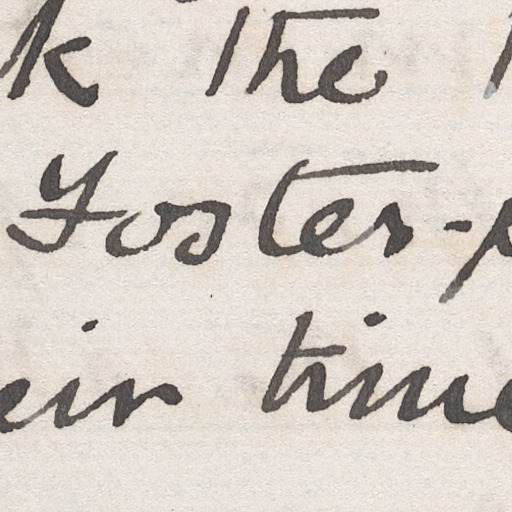 k the
Foster-p
eir time